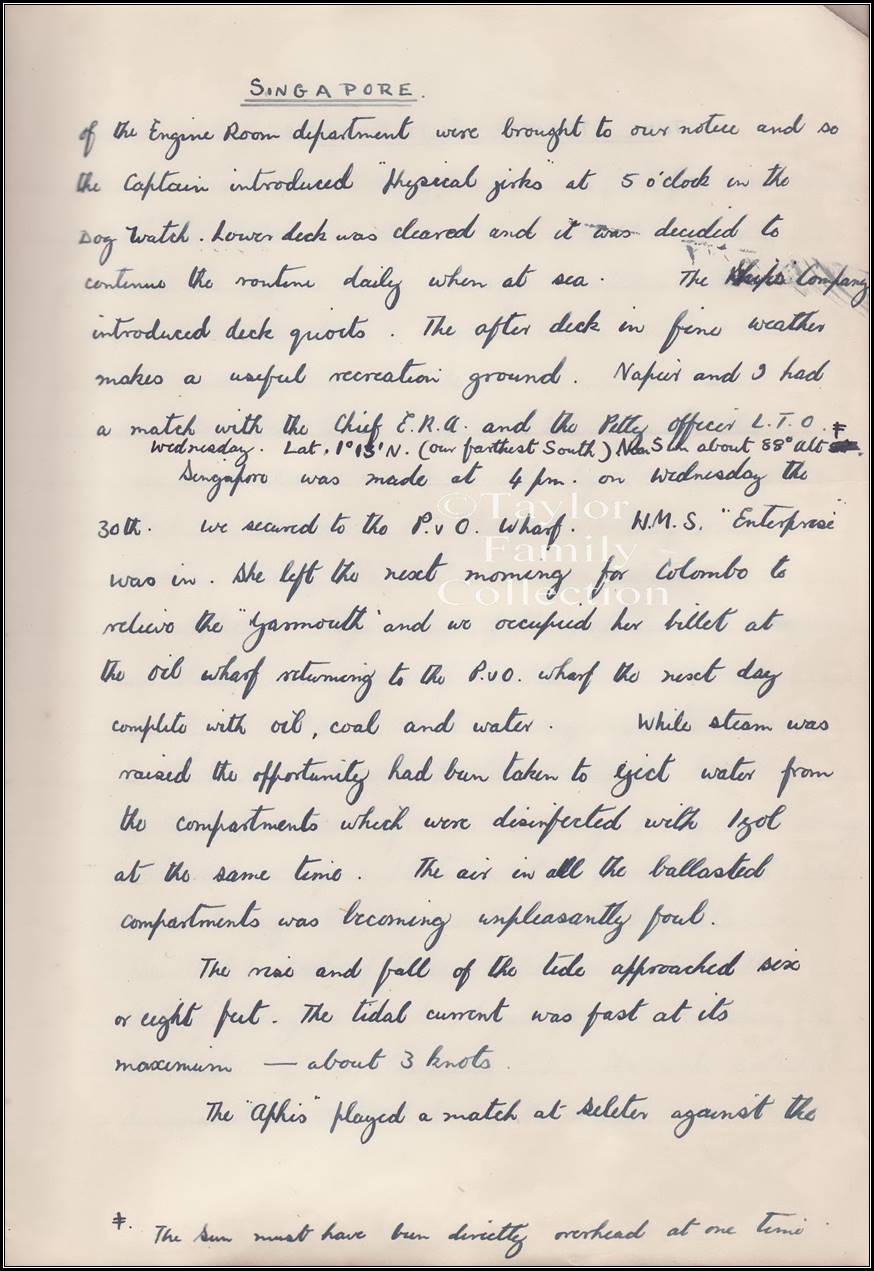 SINGAPORE.
of the Engine Room department were brought to our notice and so
the Captain introduced "Physical jirks" at 5 o'clock in the
Dog Watch. Lower deck was cleared and it was decided to
continue the routine daily when at sea. The Ship's Company
introduced deck quioits. The after deck in fine weather
makes a useful recreation ground. Napier and I had
a match with the Chief E.R.A. and the Petty officer L.T.O. ‡
Wednesday. Lat. 1°15'N. (our farthest South) Sun about 88° alt
Singapore was made at 4 pm. on Wednesday the
30th. We secured to the P.v O. Wharf. H.M.S. "Enterprise"
was in. She left the next morning for Colombo to
relieve the "Yarmouth" and we occupied her billet at
the oil wharf returning to the P.vO. wharf the next day
complete with oil, coal and water. While steam was
raised the opportunity had been taken to eject water from
the compartments which were disinfected with Izol
at the same time. The air in all the ballasted
compartments was becoming unpleasantly foul.
The rise and fall of the tide approached six
or eight feet. The tidal current was fast at its
maximum — about 3 knots.
The "Aphis" played a match at Seleter against the
‡. The Sun must have been directly overhead at one time.
©Taylor
Family
Collection